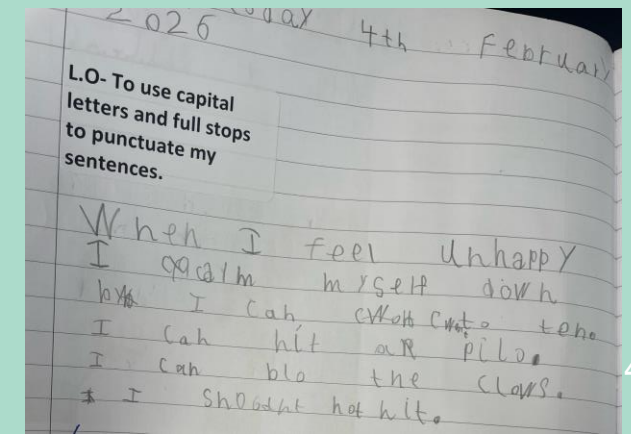 2026 day 4th February
L.O- To use capital
letters and full stops
to punctuate my
sentences.
When I feel unhappy
I calm myself down
I can to ten.
I can hit a pilo.
I can blo the clows.
I not hit.
4